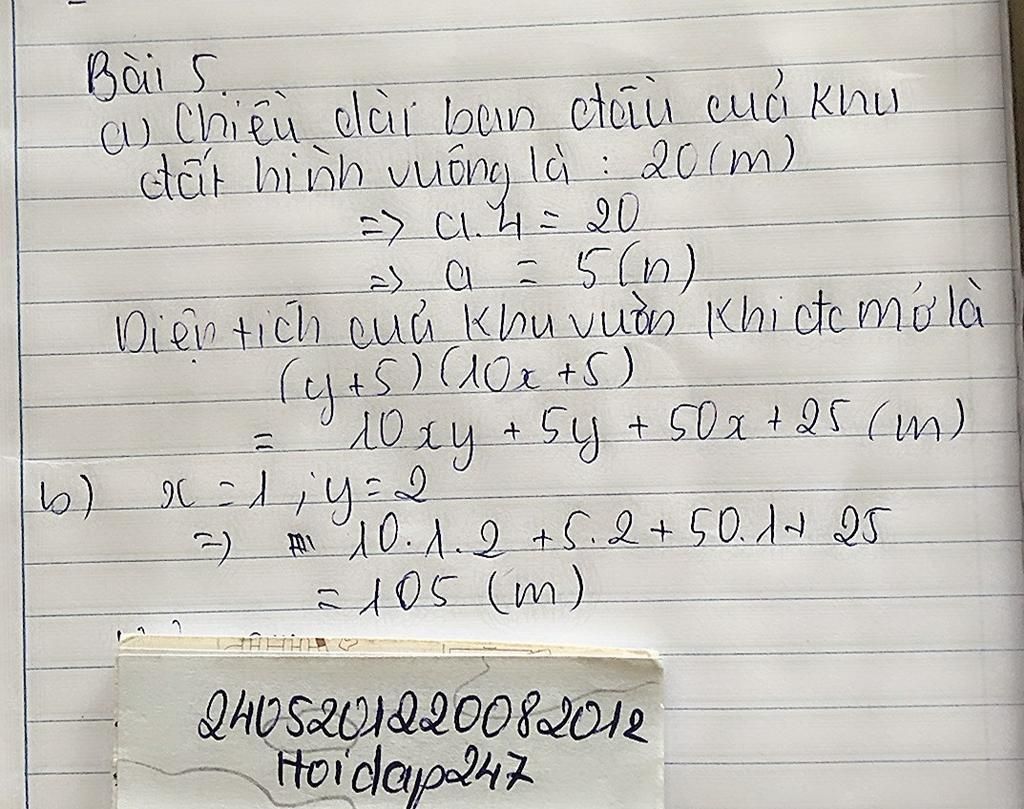 Bài 5.
a) Chiều dài ban đầu của khu
đất hình vuông là : 20 (m)
=> a.4 = 20
=> a = 5 (m)
Diện tích của khu vườn khi đc mở là
(y+5)(10x+5)
= 10xy + 5y + 50x + 25 (m)
b) x = 1 ; y = 2
=> 10.1.2 + 5.2 + 50.1 + 25
= 105 (m)
2405201220082012
Hoidap247